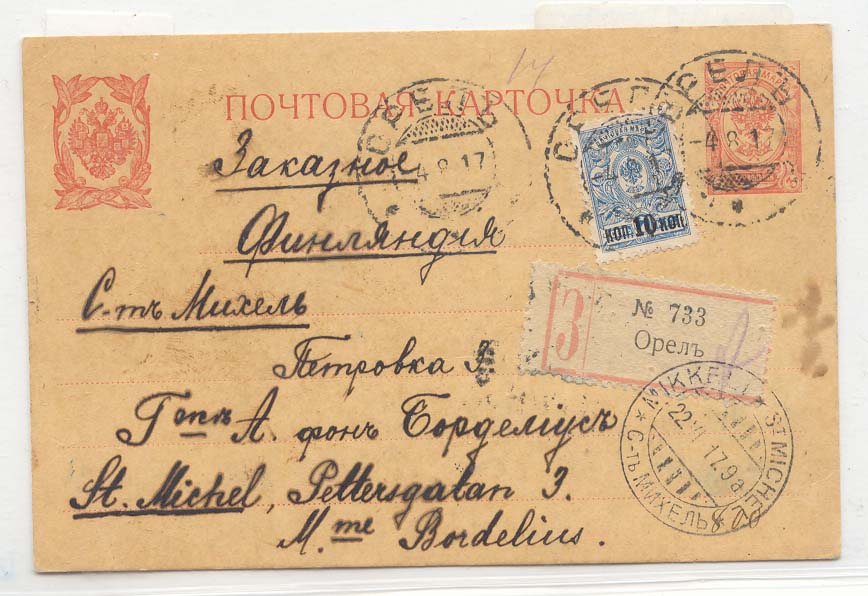 ПОЧТОВАЯ КАРТОЧКА.
ОРЕЛЪ
-4 8 17
ОРЕЛЪ
-4 8 17
коп. 10 коп
Заказное
Финляндія
С-тъ Михель
З
№ 733
Орелъ
Петровка
А. фонъ Борделіусъ
St. Michel, Pettersgatan 3.
Mme Bordelius.
MIKKELI * ST MICHEL * С-ТЪ МИХЕЛЬ *
22 17.9a